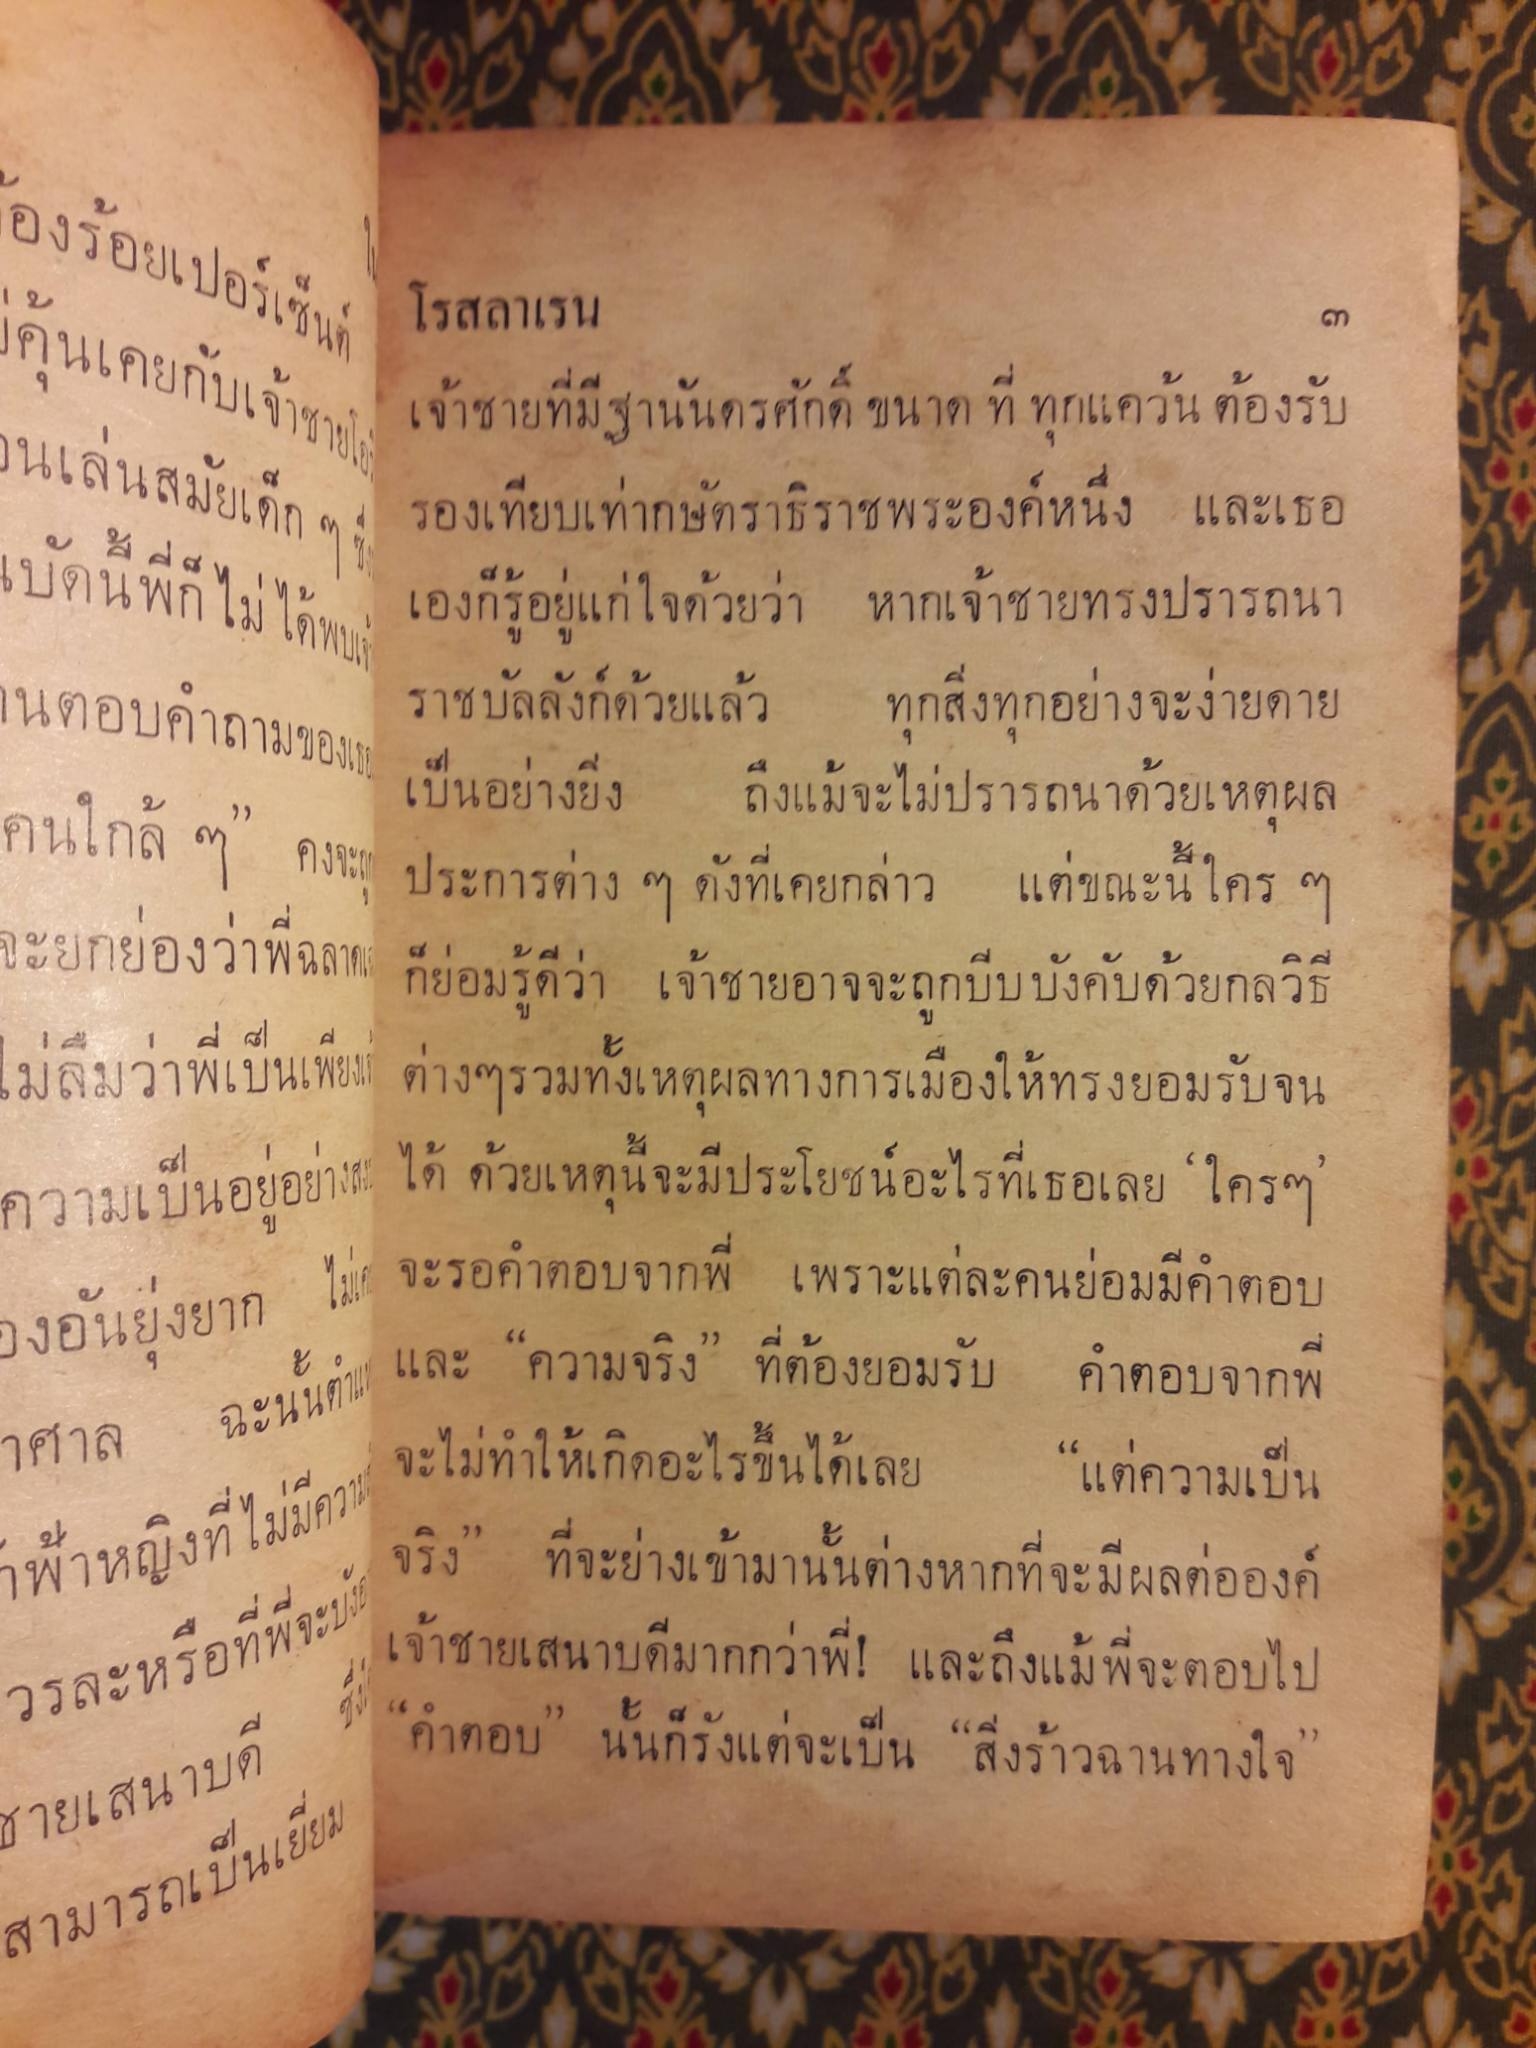 ้องร้อยเปอร์เซ็นต์
คุ้นเคยกับเจ้าชาย
เล่นสมัยเด็ก ๆ
บัดนี้พี่ก็ไม่ได้พบ
ตอบคำถามของ
คนใกล้ ๆ” คงจะ
จะยกย่องว่าพี่ฉลาด
ไม่ลืมว่าพี่เป็นเพียง
ความเป็นอยู่อย่าง
องอันยุ่งยาก
าศาล ฉะนั้น
หญิงที่ไม่มี
หรือที่พี่จะ
ชายเสนาบดี
สามารถเป็นเยี่ยม
โรสลาเรน ๓
เจ้าชายที่มีฐานันดรศักดิ์ ขนาด ที่ ทุกแคว้น ต้องรับ
รองเทียบเท่ากษัตราธิราชพระองค์หนึ่ง และเธอ
เองก็รู้อยู่แก่ใจด้วยว่า หากเจ้าชายทรงปรารถนา
ราชบัลลังก์ด้วยแล้ว ทุกสิ่งทุกอย่างจะง่ายดาย
เป็นอย่างยิ่ง ถึงแม้จะไม่ปรารถนาด้วยเหตุผล
ประการต่าง ๆ ดังที่เคยกล่าว แต่ขณะนี้ใคร ๆ
ก็ย่อมรู้ดีว่า เจ้าชายอาจจะถูกบีบบังคับด้วยกลวิธี
ต่างๆรวมทั้งเหตุผลทางการเมืองให้ทรงยอมรับจน
ได้ ด้วยเหตุนี้จะมีประโยชน์อะไรที่เธอเลย ‘ใครๆ’
จะรอคำตอบจากพี่ เพราะแต่ละคนย่อมมีคำตอบ
และ “ความจริง” ที่ต้องยอมรับ คำตอบจากพี่
จะไม่ทำให้เกิดอะไรขึ้นได้เลย “แต่ความเป็น
จริง” ที่จะย่างเข้ามานั้นต่างหากที่จะมีผลต่อองค์
เจ้าชายเสนาบดีมากกว่าพี่! และถึงแม้พี่จะตอบไป
“คำตอบ” นั้นก็รังแต่จะเป็น “สิ่งร้าวฉานทางใจ”